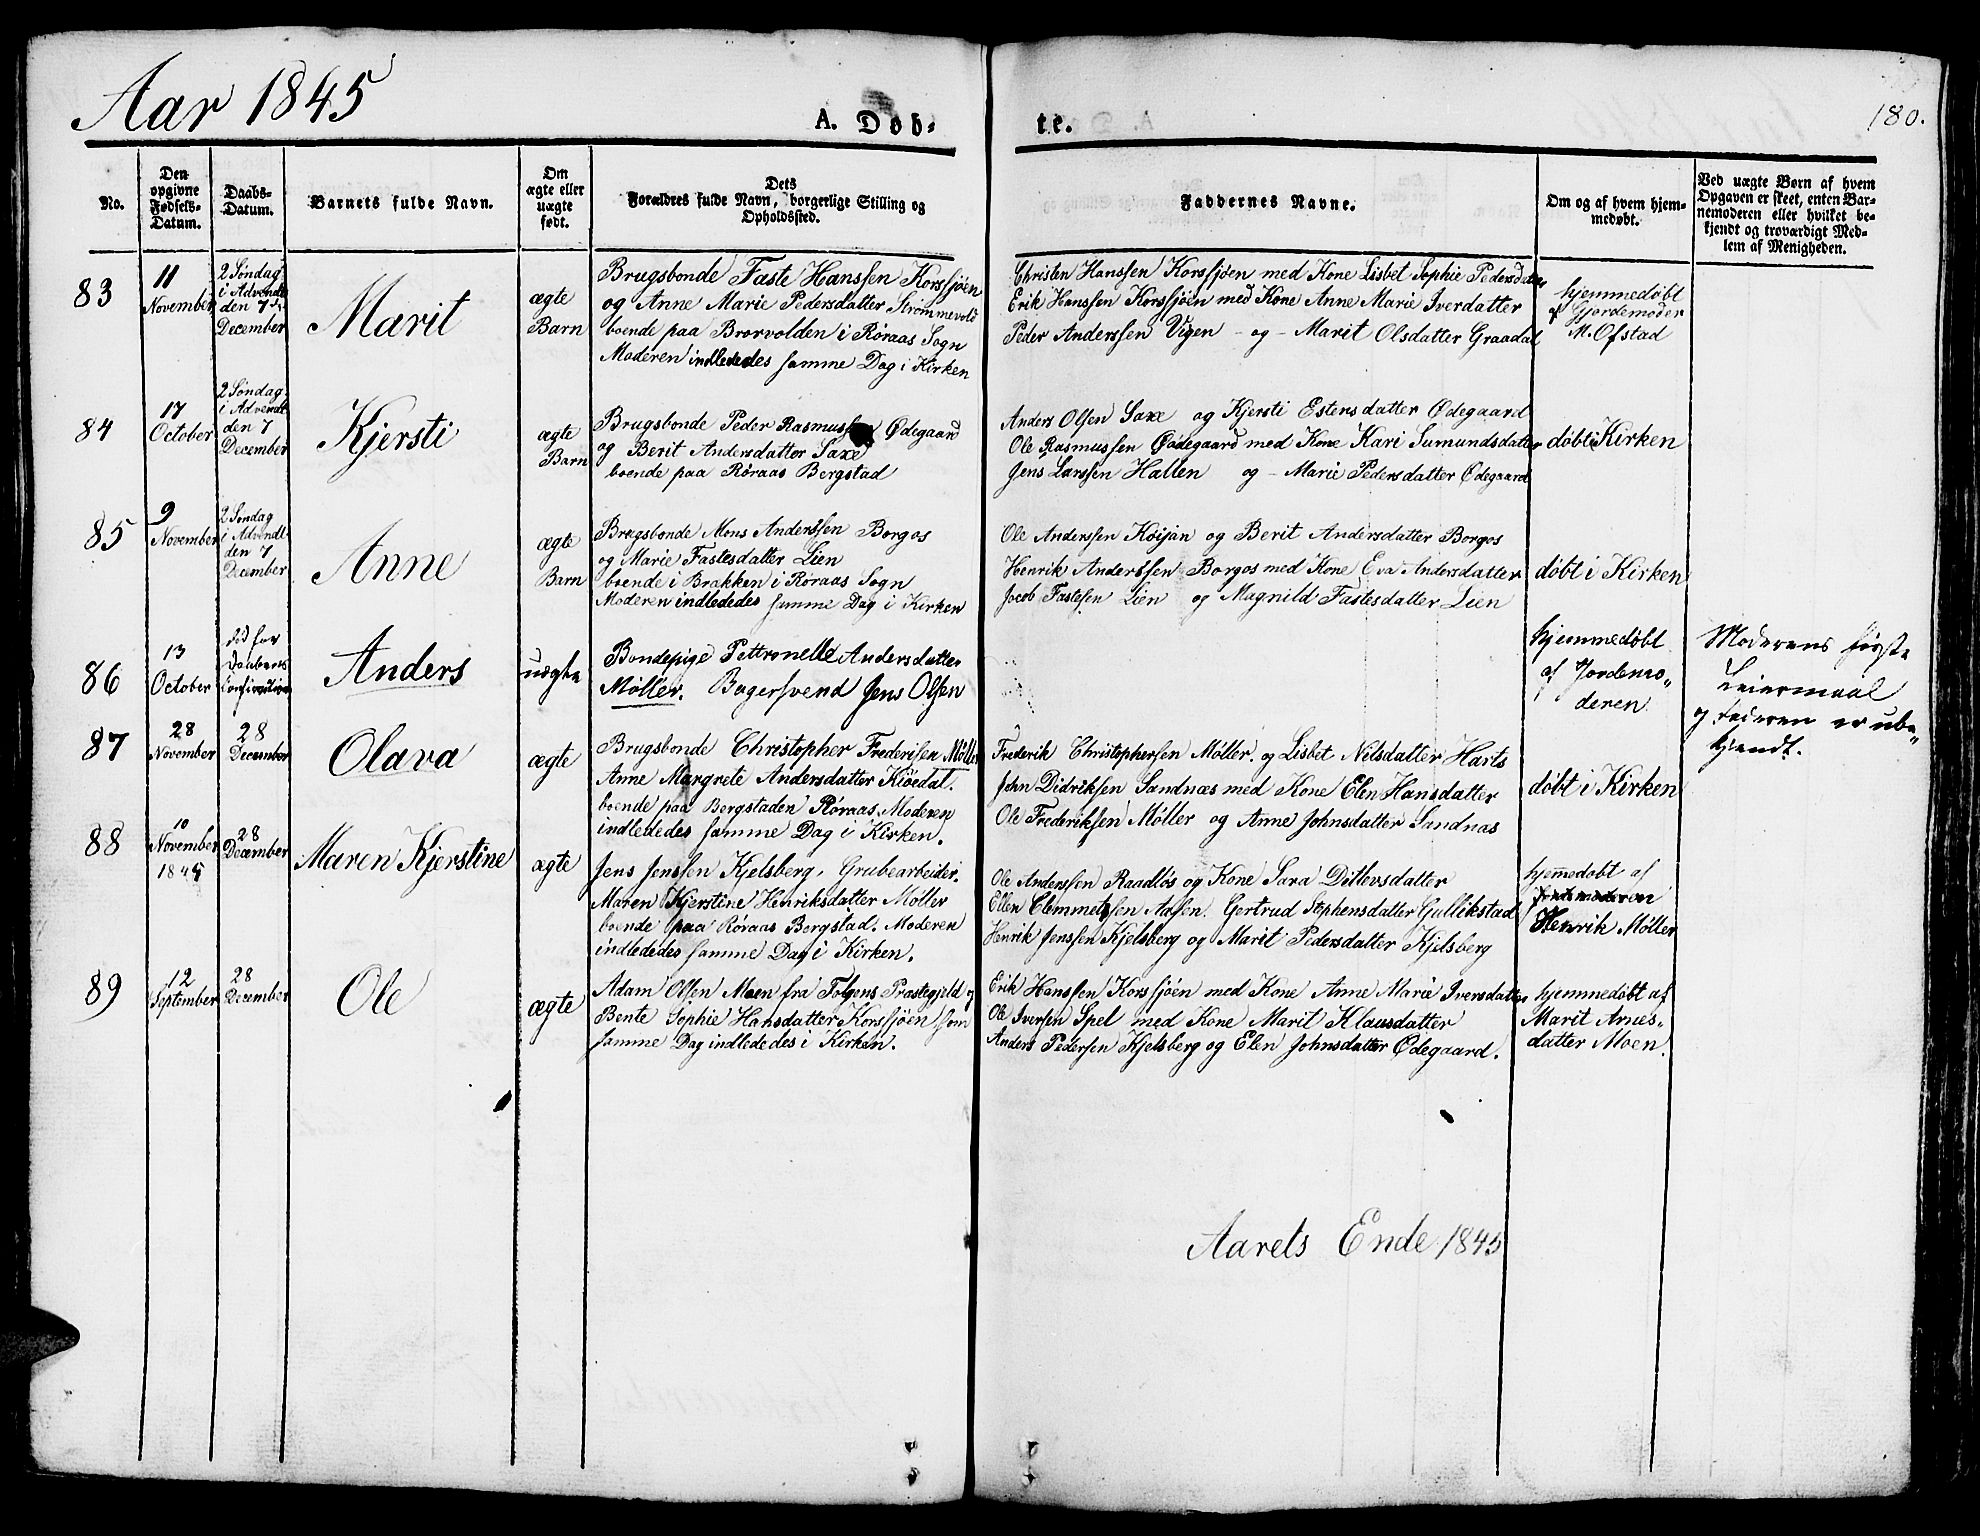 Aar 1845
A. Døb-
te.
180.
No.
Den
opgivne
Fødsels-
Datum.
Daabs-
Datum.
Barnets fulde Navn.
Om
ægte eller
uægte
født.
Dets
Forældres fulde Navn, borgerlige Stilling og
Opholdssted.
Faddernes Navne.
Om og af hvem hjem-
medøbt.
Ved uægte Børn af hvem
Opgaven er skeet, enten Bar-
nemoderen eller hvilket be-
kjendt og troværdigt Med-
lem af Menigheden.
83
11
November
2 Søndag
i Advendt
den 7
December
Marit
ægte
Barn
Brugsbonde Faste Hanssen Korssjøen
og Anne Marie Pedersdatter Strømmevold
boende paa Brorvolden i Røraas Sogn
Moderen indlededes samme Dag i Kirken
Christen Hanssen Korssjøen med Kone Lisbet Sophie Pedersdatter
Erik Hanssen Korssjøen med Kone Anne Marie Iverdatter
Peder Anderssen Vigen - og - Marit Olsdatter Graadal
hjemmedøbt
af Gjordemoder
M. Ofstad
84
17
October
2 Søndag
i Advendt
den 7
December
Kjersti
ægte
Barn
Brugsbonde Peder Rasmussen Ødegaard
og Berit Andersdatter Saxe
boende paa Røraas Bergstad
Anders Olsen Saxe og Kjersti Estensdatter Ødegaard
Ole Rasmussen Ødegaard med Kone Kari Sumundsdatter
Jens Larssen Hallen og - Marie Pedersdatter Ødegaard
døbt i Kirken
85
9
November
2 Søndag
i Advendt
den 7
December
Anne
ægte
Barn
Brugsbonde Mons Anderssen Borgos
og Marie Fastesdatter Lien
boende i Brækken i Røraas Sogn
Moderen indlededes samme Dag i Kirken
Ole Anderssen Køijan og Berit Andersdatter Borgos
Henrik Anderssen Borgos med Kone Eva Andersdatter
Jocob Fastesen Lien og Magnild Fastesdatter Lien
døbt i Kirken
86
13
October
død før
Daabens
Confirmation
Anders
uægte
Bondepige Pettronelle Andersdatter
Møller. Bagersvend Jens Olsen
hjemmedøbt
af Jordemo-
deren
Moderens første
Leiermaal
og Faderen er ube-
kjendt.
87
28
November
28
December
Olava
ægte
Brugsbonde Christopher Frederisen Møller
Anne Margrete Andersdatter Kiøedal.
boende paa Bergstaden Røraas. Moderen
indlededes samme Dag i Kirken.
Frederik Christophersen Møller. og Lisbet Nilsdatter Harts
John Didriksen Sandnæs med Kone Elen Hansdatter
Ole Frederiksen Møller og Anne Johnsdatter Sandnæs
døbt i Kirken
88
10
November
1845
28
December
Maren Kjerstine
ægte
Jens Jenssen Kjelsberg, Grubearbeider.
Maren Kjerstine Henriksdatter Møller
boende paa Røraas Bergstad. Moderen
indlededes samme Dag i Kirken.
Ole Anderssen Raadløs og Kone Sara Ditlevsdatter
Ellen Clemmetssen Aasen. Gertrud Stephensdatter Gullikstad
Henrik Jenssen Kjelsberg og Marit Pedersdatter Kjelsberg
hjemedøbt af
Jordemoderen
Henrik Møller
89
12
September
28
December
Ole
ægte
Adam Olsen Moen fra Tolgens Præstegjeld og
Bente Sophie Hansdatter Korssjøen, som
samme Dag indlededes i Kirken.
Erik Hanssen Korssjøen med Kone Anne Marie Iversdatter
Ole Iversen Spel med Kone Marit Klausdatter
Anders Pedersen Kjelsberg og Elen Johnsdatter Ødegaard.
hjemmedøbt af
Marit Arnes-
datter Moen.
Aarets Ende 1845